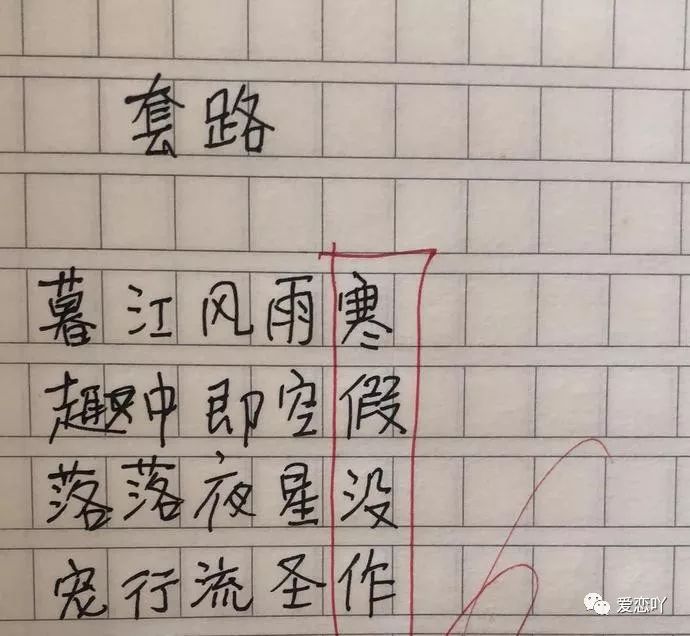 套路
暮江风雨寒
趣中即空假
落落夜星没
宠行流圣作
爱恋吖